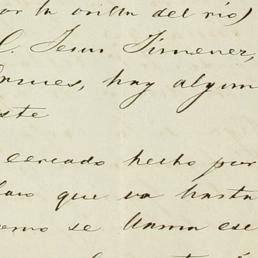 or la orilla del río)
C. Jesus Jimenez,
hay algun
este
cercado hecho por
que va hasta
como se llama ese